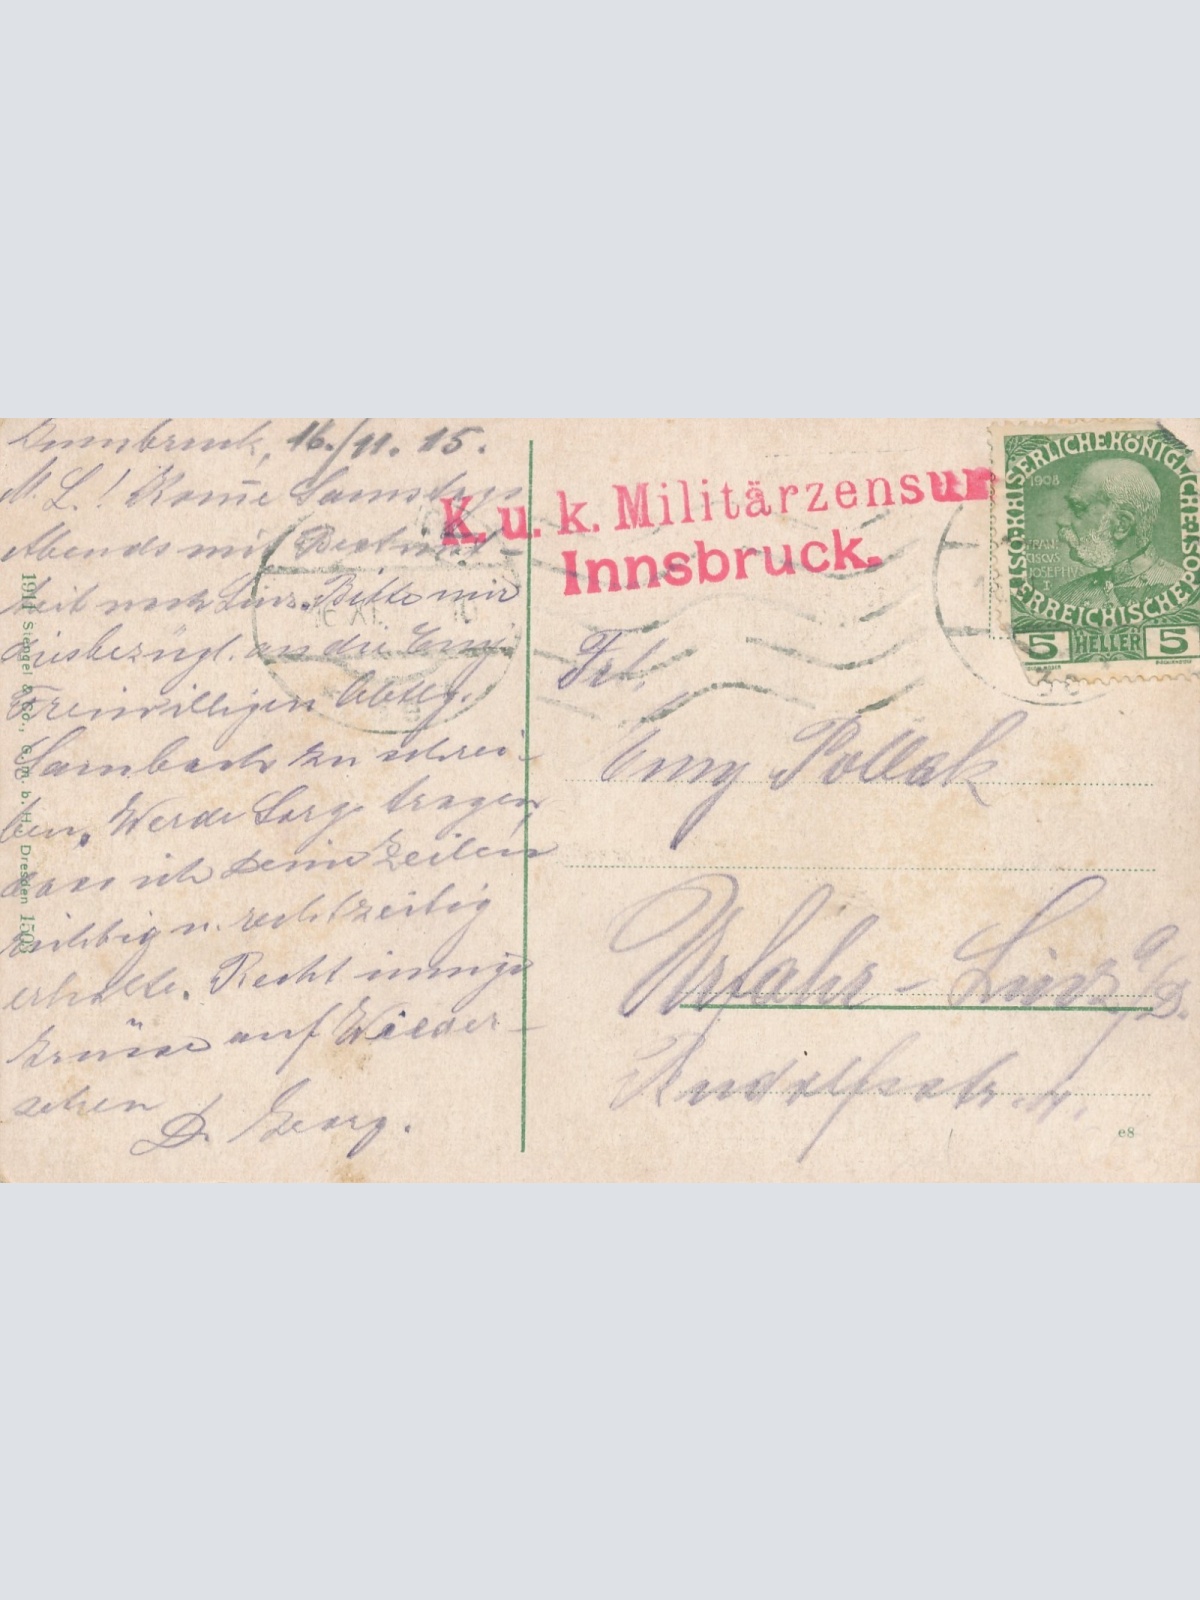 Innsbruck, 16./11. 15.
M. L.! Kom̄e Samstags
Abends mit
nach Linz. Bitte mir
diesbezügl. an die Einj.
Freiwilligen Abtlg.
Lambach zu schrei-
ben. Werde Sorge tragen,
dass ich Deine Zeilen
richtig u. rechtzeitig
erhalte. Recht innige
Grüsse auf Wieder-
sehen
D. Georg.
1911 Stengel & Co., G. m. b. H., Dresden 1503
K. u. k. Militärzensur
Innsbruck.
KAISERLICHE KÖNIGLICHE ÖSTERREICHISCHE
1908
FRAN
CISCVS
JOSEPH I
5 HELLER 5
Frl.
Emy Pollak
Urfahr - Linz a/D.
e8